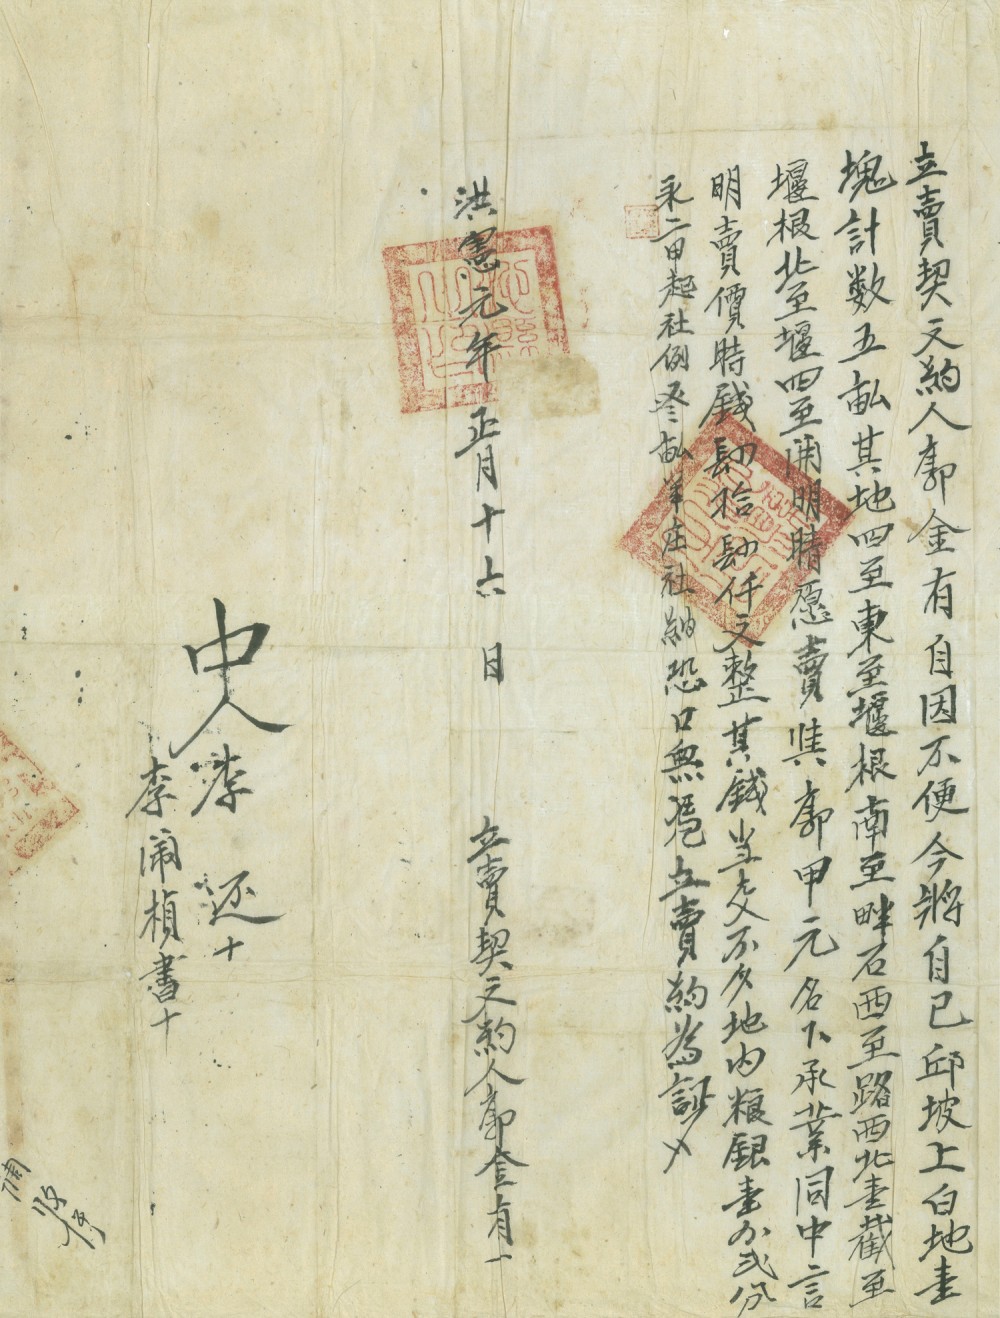 立賣契文約人郭金有自因不便今將自己邱坡上白地壹
塊計数五畝其地四至東至堰根南至畔石西至路西北壹截至
堰根北至堰四至開明情愿賣與郭甲元名下承業同中言
明賣價時錢肆拾肆仟文整其錢当交不欠地内粮銀壹分弐分
永二甲起社例畝羊庄社納恐口無憑立賣約為証
洪憲元年正月十六日
立賣契文約人郭金有
中人李还十
李闹楨書十